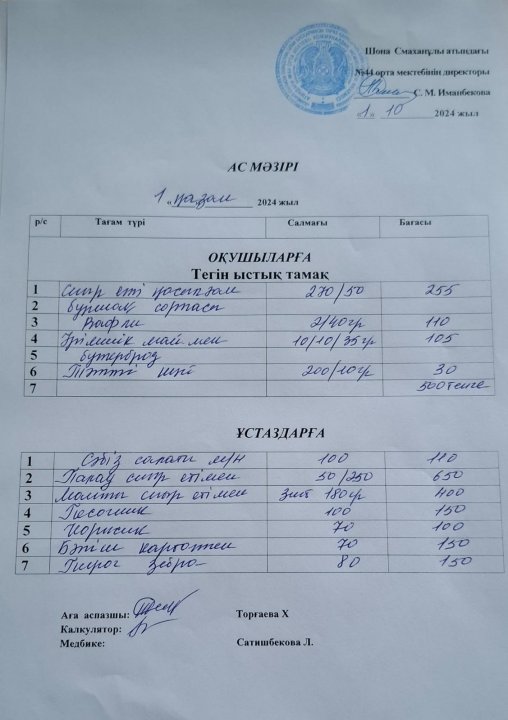 Шона Смаханұлы атындағы
№44 орта мектебінің директоры
С. М. Иманбекова
«1» 10 2024 жыл
АС МӘЗІРІ
1 « қазан 2024 жыл
р/с Тағам түрі Салмағы Бағасы
ОҚУШЫЛАРҒА
Тегін ыстық тамақ
1 Сиыр еті қосылған 270/50 255
2 бұршақ сорпасы
3 Вафли 2/40гр 110
4 Ірімшік май мен 10/10/35гр 105
5 бутерброд
6 Тәтті шай 200/10гр 30
7 500 теңге
ҰСТАЗДАРҒА
1 Сәбіз салаты 100 110
2 Палау сиыр етімен 50/250 650
3 Манты сиыр етімен 2шт 180гр 400
4 Песочник 100 150
5 70 100
6 Бәліш картоппен 70 150
7 Пирог Зебра 80 150
Аға аспазшы: Торғаева Х
Калкулятор:
Медбике: Сатишбекова Л.